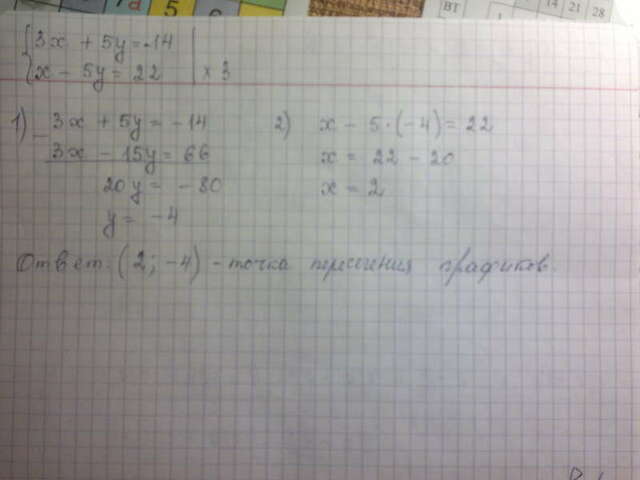 7а 5
ВТ 1 14 21 28
{3x + 5y = -14
x - 5y = 22 | × 3
1) - 3x + 5y = -14
3x - 15y = 66
20y = -80
y = -4
2) x - 5·(-4) = 22
x = 22 - 20
x = 2
Ответ: (2; -4) - точка пересечения графиков.